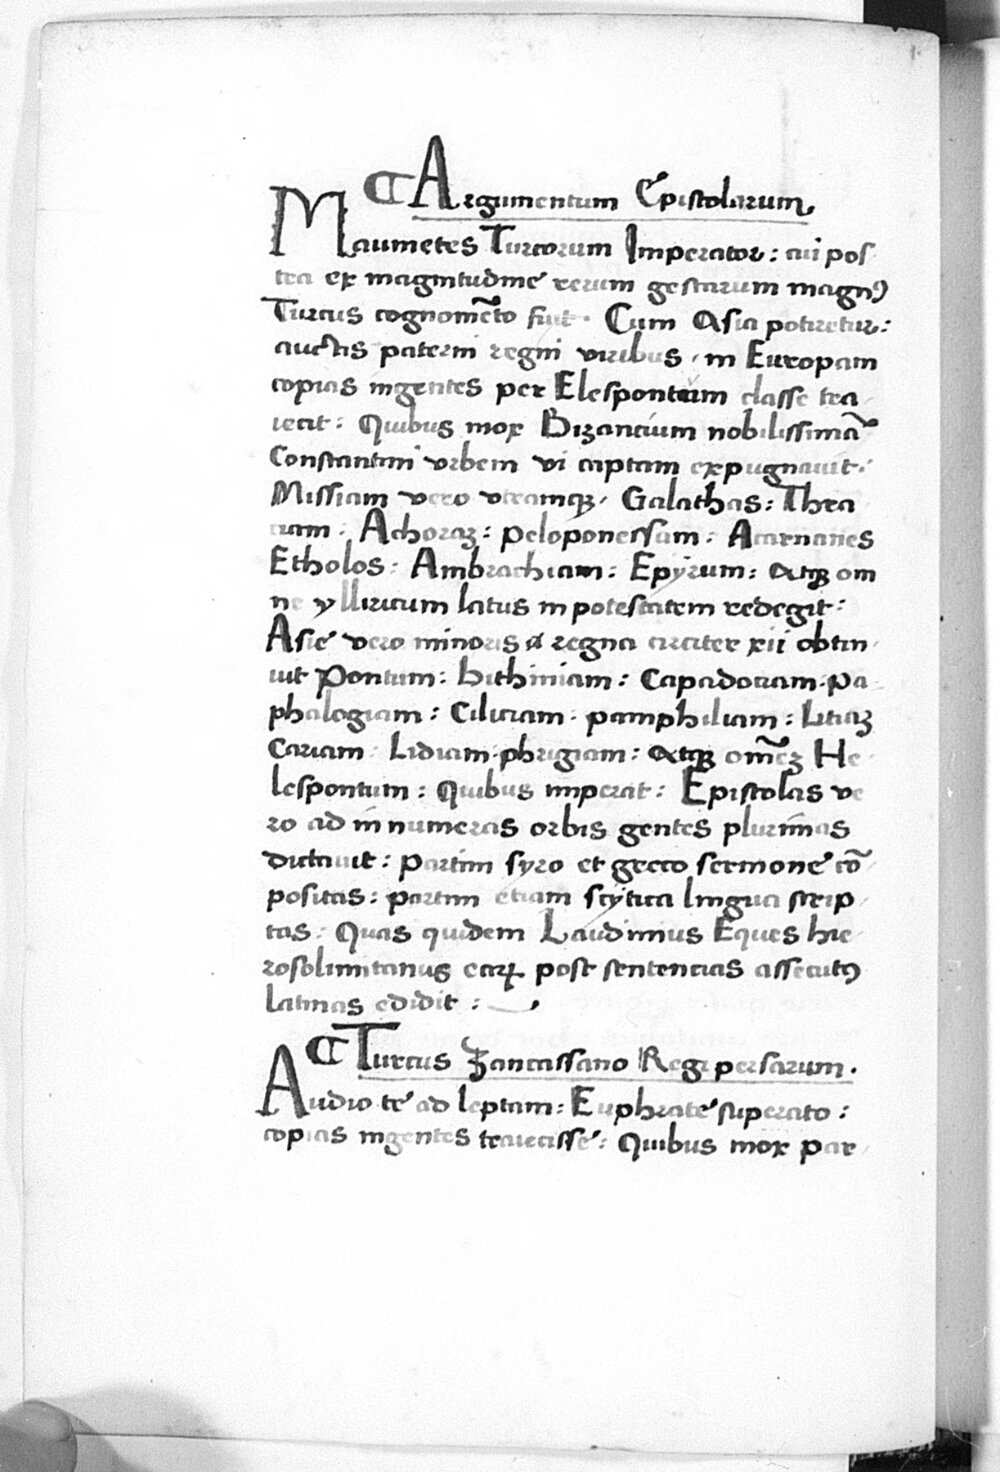 1.
¶ Argumentum Epistolarum
Maumetes Turcorum Imperator : cui pos
tea ex magnitudine rerum gestarum magnꝰ
Turcus cognomēto fuit . Cum Asia potiretur :
auctis paterni regni viribus , in Europam
copias ingentes per Elespontum classe tra
iecit : Quibus mox Bizancium nobilissimā
Constantini vrbem vi captam expugnauit .
Missiam vero vtramqꝫ , Galathas : Thra
ciam : Achoraꝫ : peloponessum : Acarnanes
Etholos : Ambrachiam : Epyrum : atqꝫ om
ne ylliricum latus in potestatem redegit :
Asie vero minoris regna circiter xii obtin
uit Pontum : bithiniam : Capadociam . Pa
phalogiam : Ciliciam : pamphiliam : Liciaꝫ
Cariam : Lidiam . phrigiam : atqꝫ om̄eꝫ He
lespontum : Quibus imperat : Epistolas ve
ro ad innumeras orbis gentes plurimas
dictauit : partim syro et greco sermone cō
positas : partim etiam scytica lingua scrip
tas : Quas quidem Laudinius Eques hie
rosolimitanus eaꝝ post sentencias assecutꝰ
latinas edidit :
¶ Turcus Zancassano Regi persarum .
Audio te ad leptam : Euphrate superato :
copias ingentes traiecisse : Quibus mox par